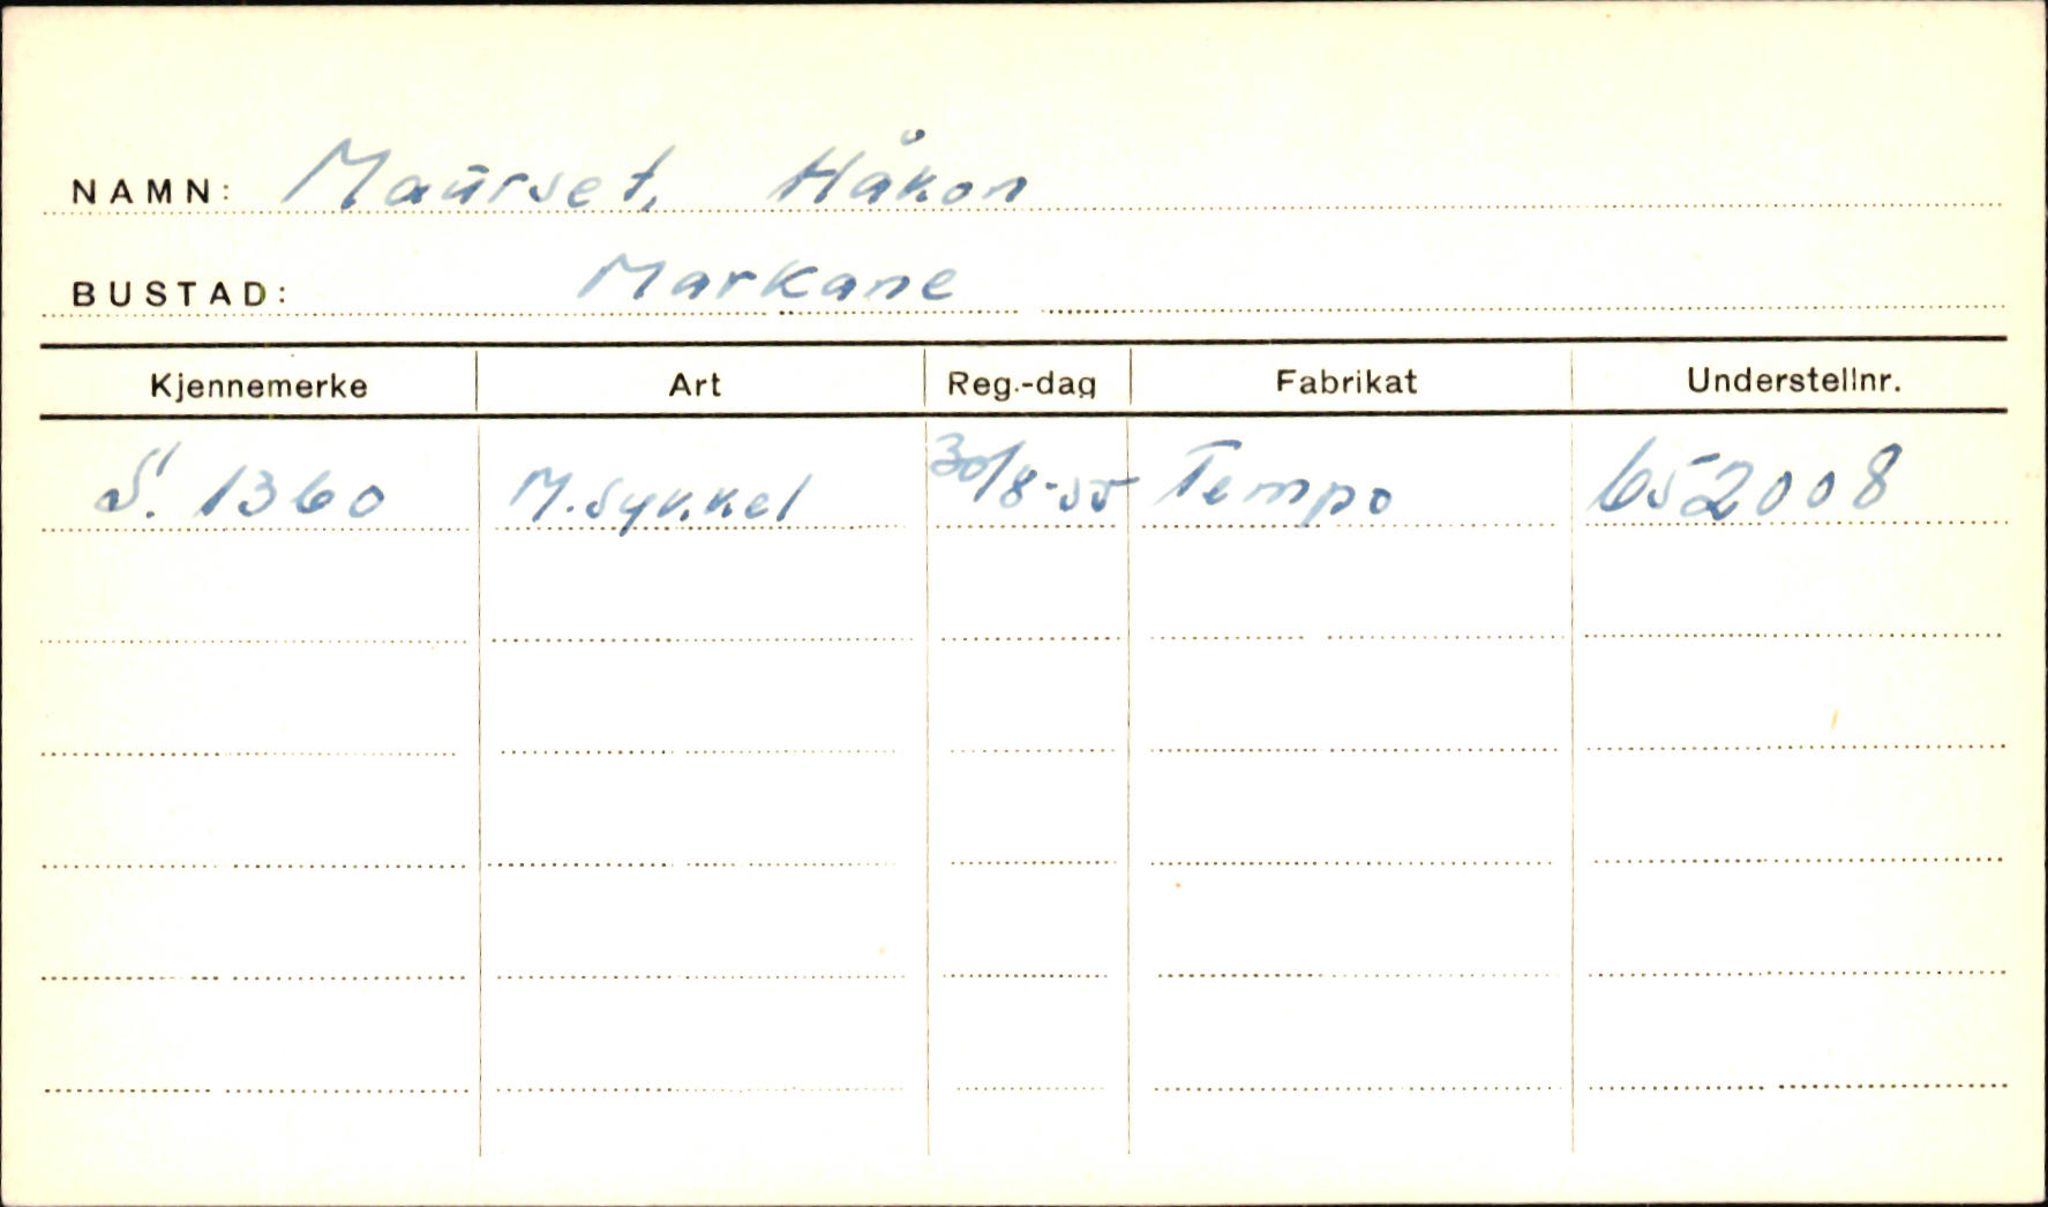 NAMN: Maurset, Håkon
BUSTAD: Markane
Kjennemerke Art Reg.-dag Fabrikat Understellnr.
S. 1360 M.sykkel 30/8-55 Tempo 652008